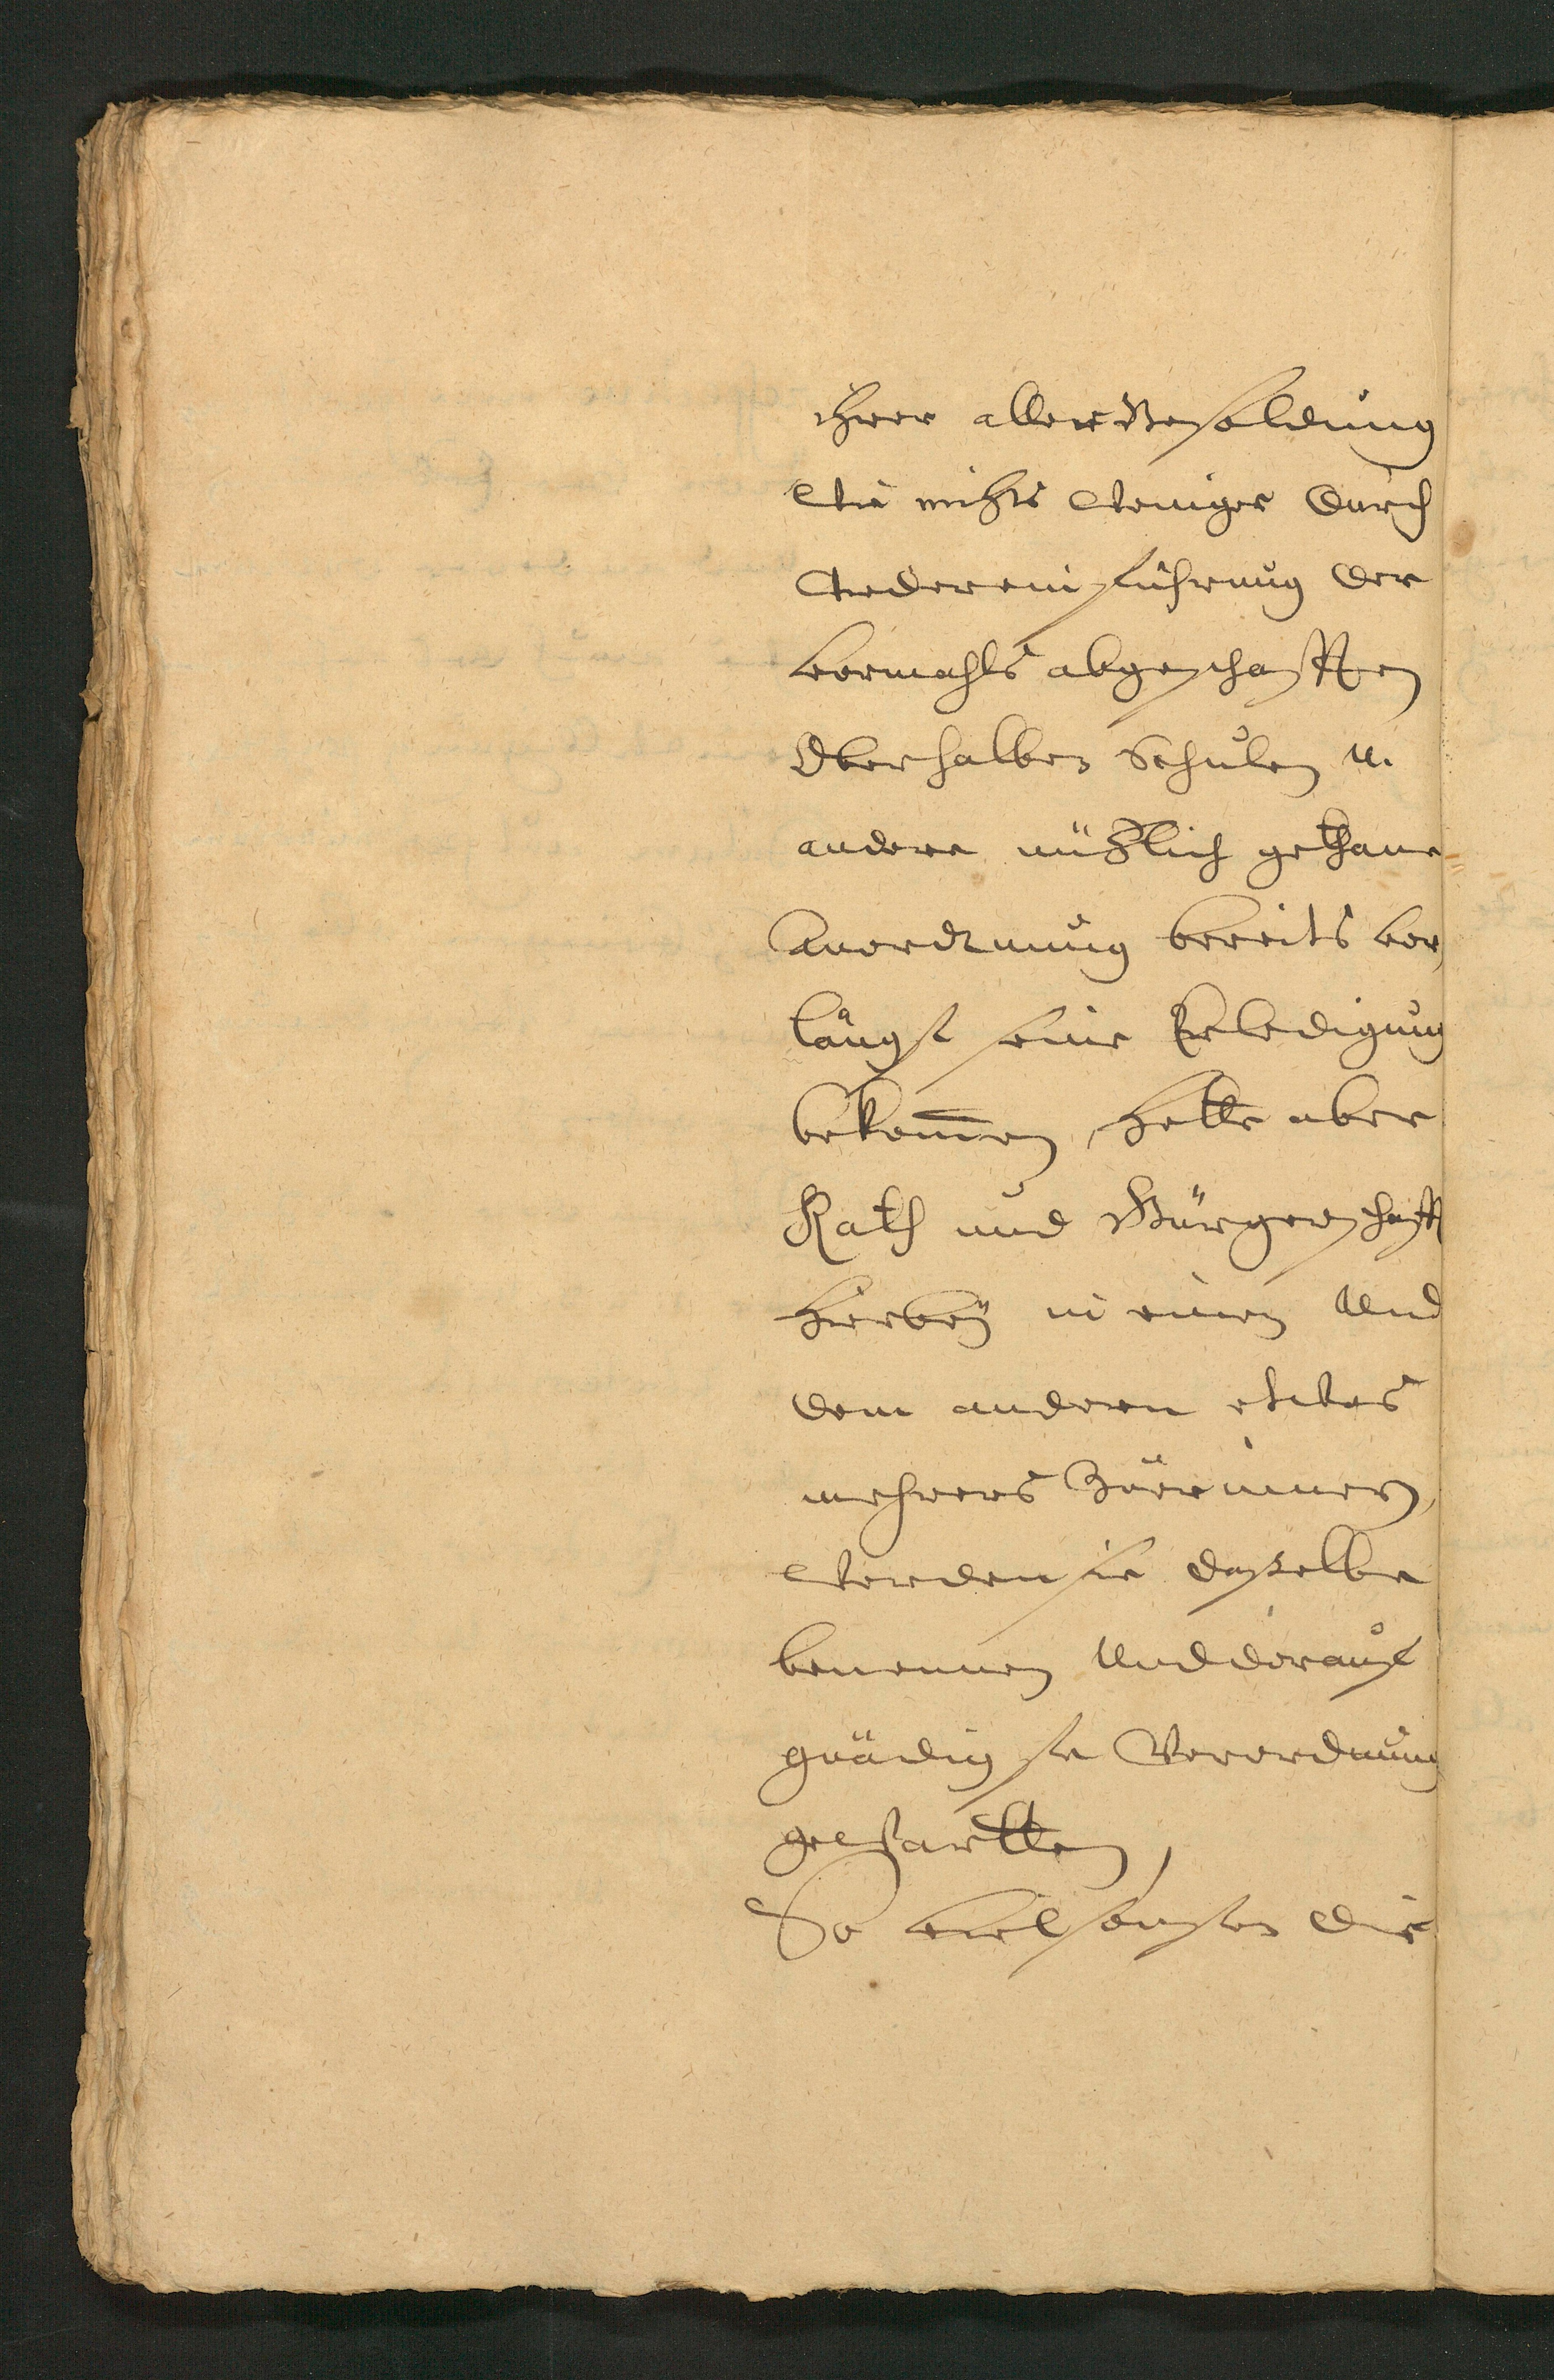 ihrer aller Besoldung
wie nichts weniger durch
Wiedereinführung der
vormahls abgeschafften
Oberhalben Schulen u.
andere nützlich gethane
Anordtnung bereits vor,
längst seine Erledigung
bekom̅en, hette aber
Rath und Bürgerschafft
hierbeÿ in einen Und
dem andern etwas
mehrers Zuerinnern,
werden sie dasselbe
benennen Und darauf
gnädigste Verordnung
gewartten,
So viel sonsten die